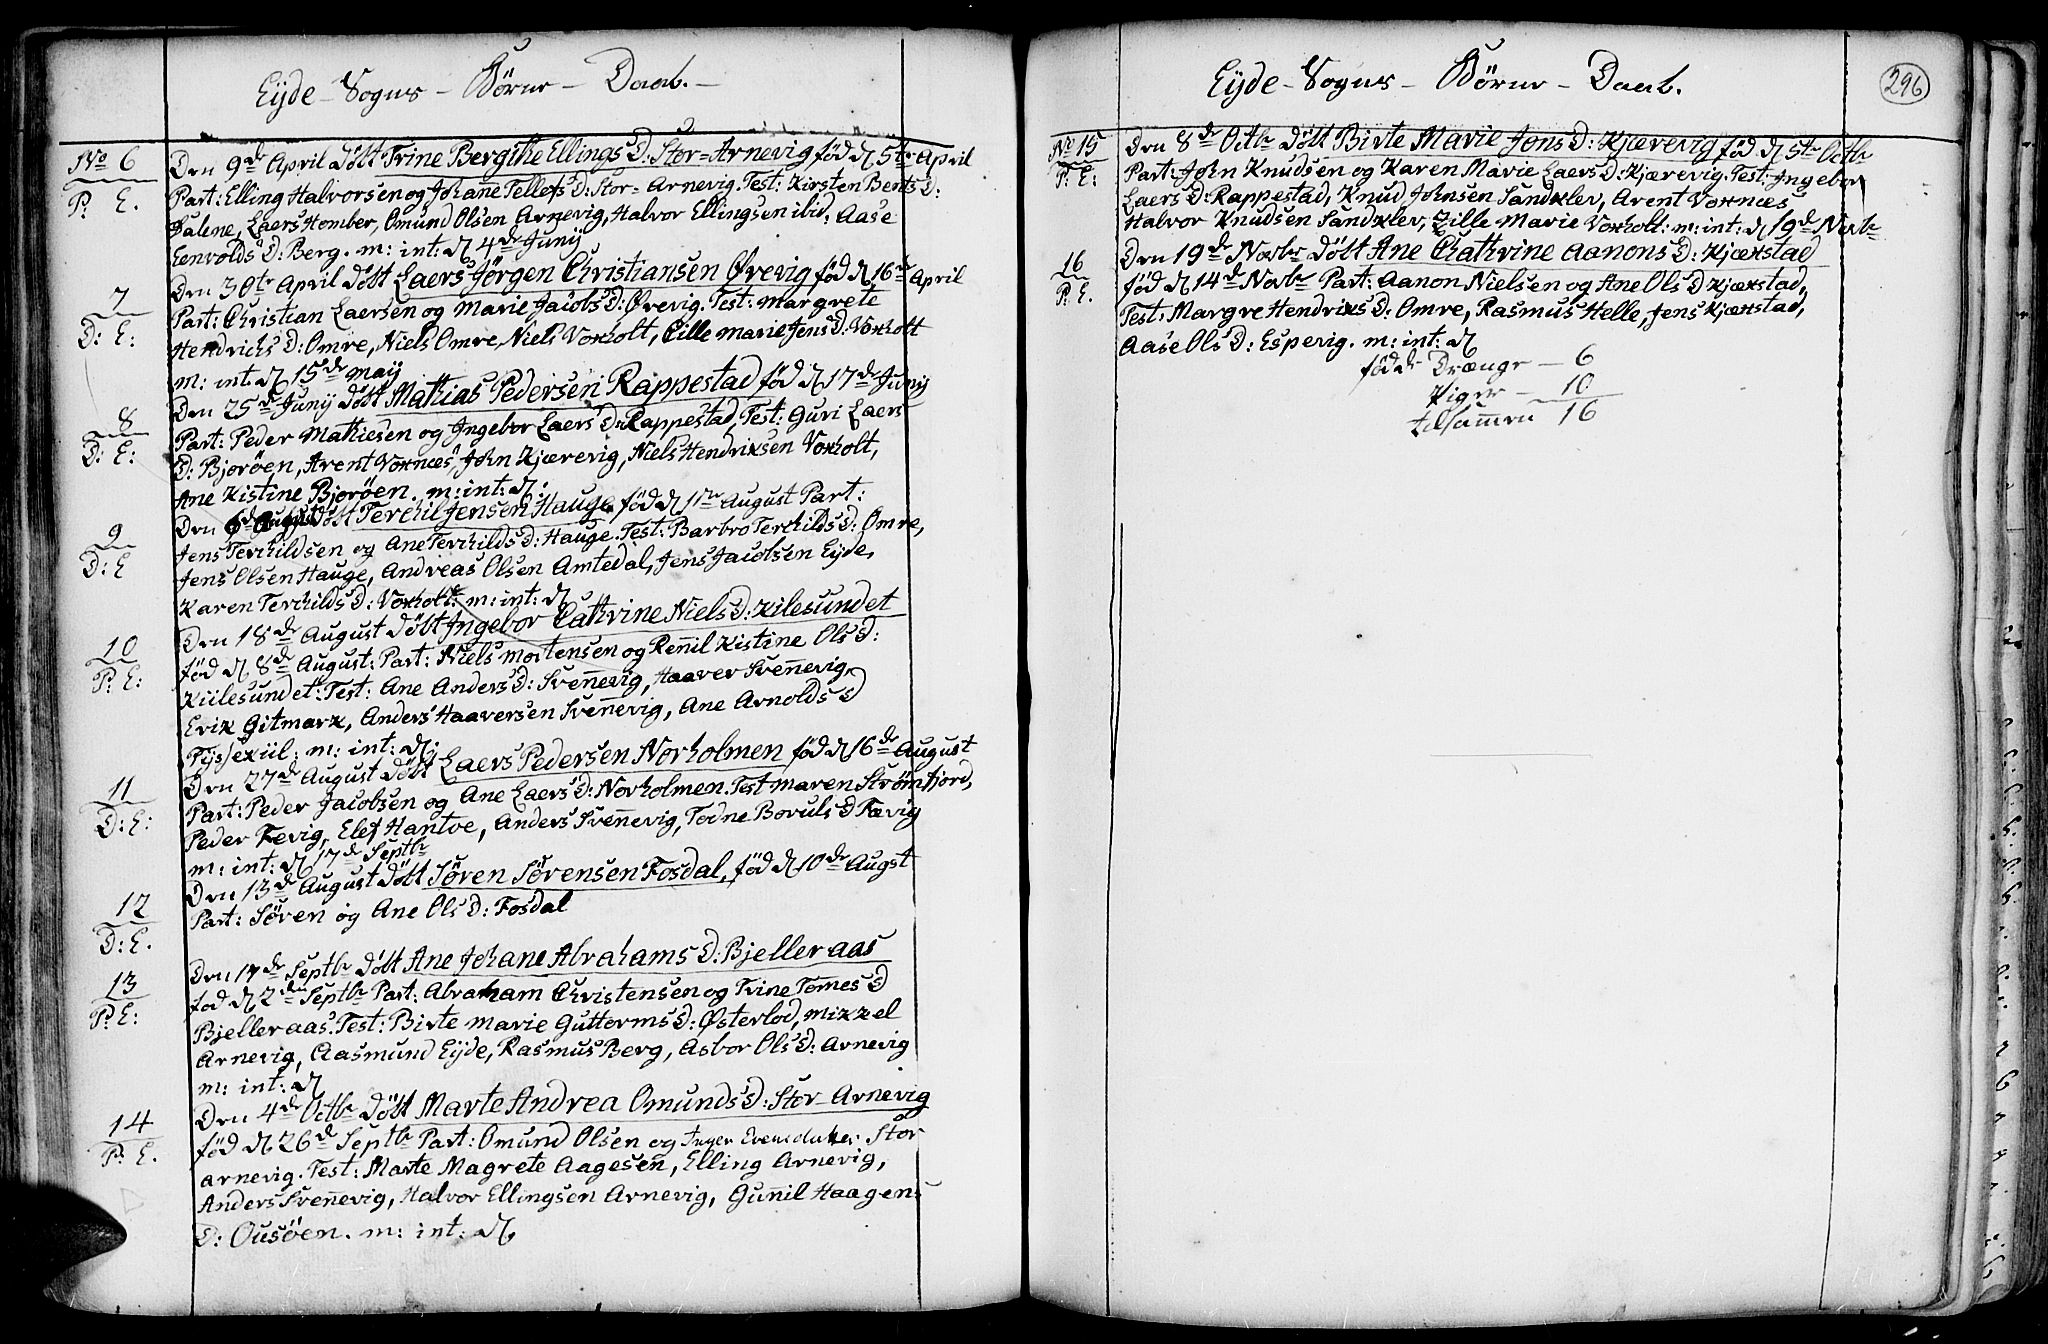 Eyde – Sogns – Börne – Daab. –
No 6
P: E.
Den 9de April döbt Trine Bergithe Ellings D. Stor=Arnevig föd d 5te April
Part: Elling Halvorsen og Johane Tellefs D: Stor=Arnevig. Test: Kirsten Bents D:
Dalene, Laers Homber, Omund Olsen Arnevig, Halvor Ellingsen ibid: Aase
Eenvolds D: Berg. m: int: d 4de Junÿ
7
D: E:
Den 30te April döbt Laers Jörgen Christiansen Ørevig föd d 16de April
Part: Christian Laersen og Marie Jacobs D: Ørevig. Test: Margrete
Hendrichs D: Omre, Niels Omre, Niels Voxholt, Cille Marie Jens D: Voxholt
m: int: d 15de Maÿ
8
D: E:
Den 25de Junÿ döbt Mathias Pedersen Rappestad föd d 17de Junÿ
Part: Peder Mathiesen og Ingebor Laers D: Rappestad, Test: Guri Laers
D: Bjoröen, Arent Voxnæs, John Kjærevig, Niels Hendriksen Voxholt,
Ane Kistine Bjoröen. m: int: d:
9
D: E
Den August döbt Terchil Jensen Hauge föd d 1te August Part:
Jens Terchildsen og Ane Terchilds D: Hauge. Test: Barbro Terchilds D: Omre,
Jens Olsen Hauge, Andreas Olsen Amtedal, Jens Jacobsen Eyde,
Karen Terchilds D: Voxholt: m: int: d
10
P: E:
Den 18de August döbt Ingebor Cathrine Niels D: Kilesundet
föd d 8de August: Part: Niels Mortensen og Ren̄il Kistine Ols D:
Kiilesundet: Test: Ane Anders D: Sven̄evig, Haaver Sven̄evig,
Erik Gitmark, Anders Haaversen Sven̄evig, Ane Arnolds D
Tÿssekiil; m: int: d;
11
D: E:
Den 27de August döbt Laers Pedersen Norholmen föd d 16de August
Part: Peder Jacobsen og Ane Laers D: Norholmen. Test Maren Strömfjord,
Peder Fevig, Elef Hantoe, Anders Sven̄evig, Todne Boruls D Fævig
m: int: d 17de Septbr
12
D: E.
Den 13de August döbt Sören Sörensen Fosdal, föd d 10de Augst
Part: Sören og Ane Ols D: Fosdal
13
P: E:
Den 17de Septbr döbt Ane Johane Abrahams D: Bjelleraas
föd d 2den Septbr Part: Abraham Christensen og Trine Tomes D
Bjelleraas. Test: Birte Marie Guttorms D: Østerlod, Mikkel
Arnevig, Aasmund Eyde, Rasmus Berg, Asbor Ols D: Arnevig
m: int: d
14
P: E.
Den 4de Octbr döbt Marte Andrea Omunds D: Stor–Arnevig
föd d 26de Septbr Part: Omund Olsen og Inger Evensdatter Stor
arnevig. Test: Marte Magrete Aagesen, Elling Arnevig,
Anders Sven̄evig, Halvor Ellingsen Arnevig, Gun̄il Haagens
D: Ousöen. m: int: d,
Eyde – Sogns – Börne – Daab.
296
No 15
P: E:
Den 8de Octbr döbt Birte Marie Jons D: Kjærevig föd d 5te Octbr
Part: John Knudsen og Karen Marie Laers D: Kjærevig. Test: Ingebor
Laers D: Rappestad, Knud Johnsen Sandklev, Arent Voxnæs
Halvor Knudsen Sandklev, Zille Marie Voxholt: m: int: d 19de Novbr
16
P: E.
Den 19de Novbr döbt Ane Chathrine Aanons D: Kjæxstad
föd d 14de Novbr Part: Aanon Nielsen og Ane Ols D Kjæxstad,
Test: Margre Hendriks D: Omre, Rasmus Helle, Jens Kjæxstad,
Aase Ols D: Esperig. m: int: d
föd de Drænge – 6
Piger – 10
tilsam̄en 16